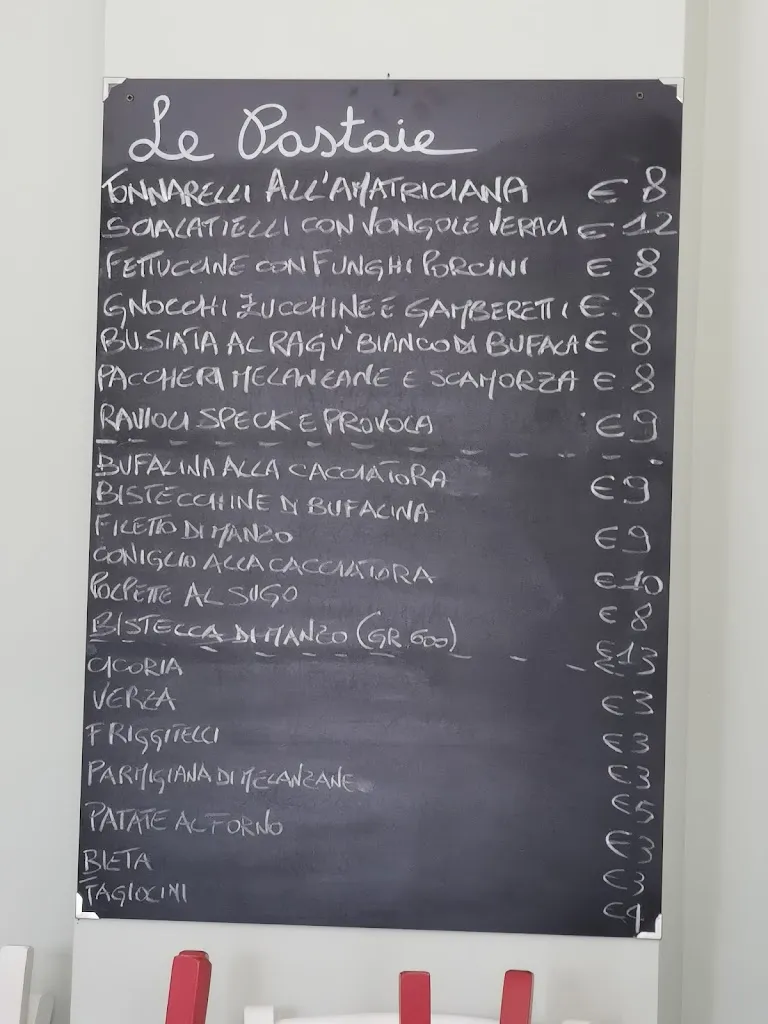 Le Pastaie
TONNARELLI ALL'AMATRICIANA € 8
SCIALATIELLI CON VONGOLE VERACI € 12
FETTUCCINE CON FUNGHI PORCINI € 8
GNOCCHI ZUCCHINE E GAMBERETTI €. 8
BUSIATA AL RAGU' BIANCO DI BUFALA € 8
PACCHERI MELANZANE E SCAMORZA € 8
RAVIOLI SPECK E PROVOLA € 9
BUFALINA ALLA CACCIATORA € 9
BISTECCHINE DI BUFALINA
FILETTO DI MANZO € 9
CONIGLIO ALLA CACCIATORA € 10
POLPETTE AL SUGO € 8
BISTECCA DI MANZO (GR 600) € 13
CICORIA € 3
VERZA € 3
FRIGGITELLI € 3
PARMIGIANA DI MELANZANE € 5
PATATE AL FORNO € 3
BIETA € 3
FAGIOLINI € 4